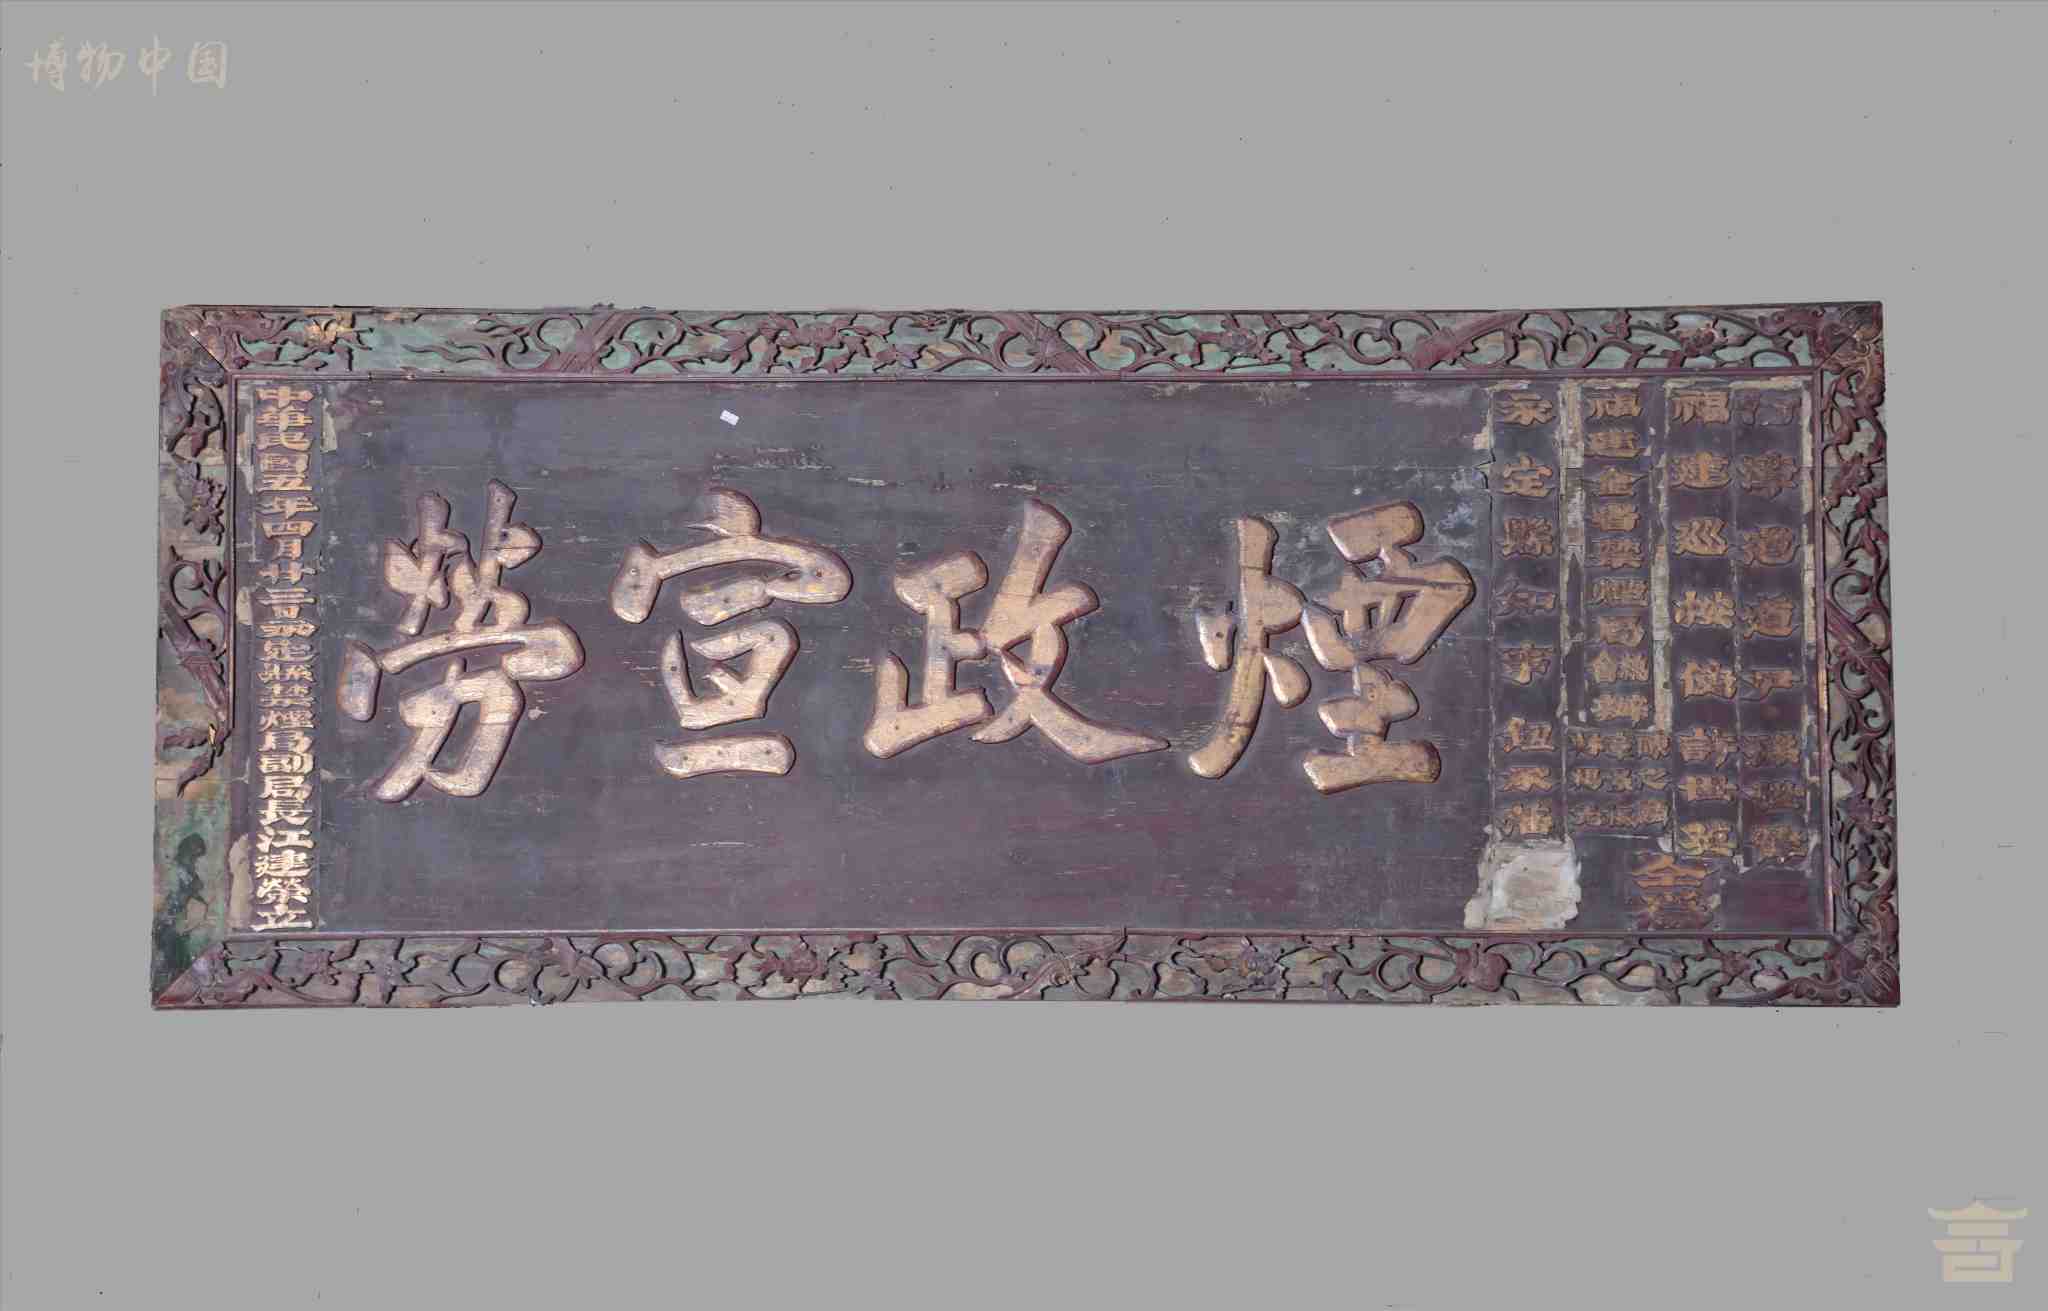 博物中国
汀漳道道尹
福建巡按使許世英
福建全省禁煙局會辦
永定縣知事鈕承藩
仝為
煙政宣勞
中華民國五年四月廿二日永定縣禁煙局副局長江建榮立